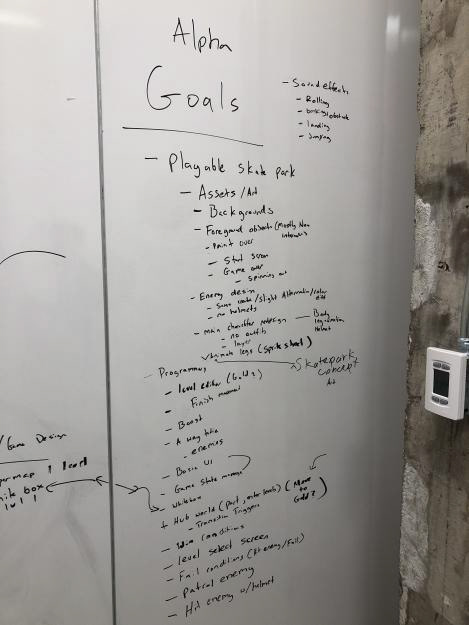 Alpha
Goals
- Sound effects
- Rolling
- landing
- Jumping
- Playable skate park
- Assets/Art
- Backgrounds
- Foreground objects (Mostly Non
- Paint over
- Start screen
- Game over
- Spinning out
- Enemy design
- Same scale/slight Alternation/color
- no helmets
- main character redesign — Body
- no outfits
- layer
Helmet
Animate legs (sprite sheet)
Skatepark
concept
Art
- Programming
- level editor (Gold?)
- Finish movement
- Boost
- A way
- enemies
- Basic UI
- Game State manager
- whitebox
+ Hub world (part, outer levels) (Move
to
Gold?)
- Transition Triggers
- Win conditions
- level select screen
- Fail conditions (Hit enemy/Fall)
- Patrol enemy
- Hit enemy w/helmet
/Game Design
map 1 level
box
lvl 1